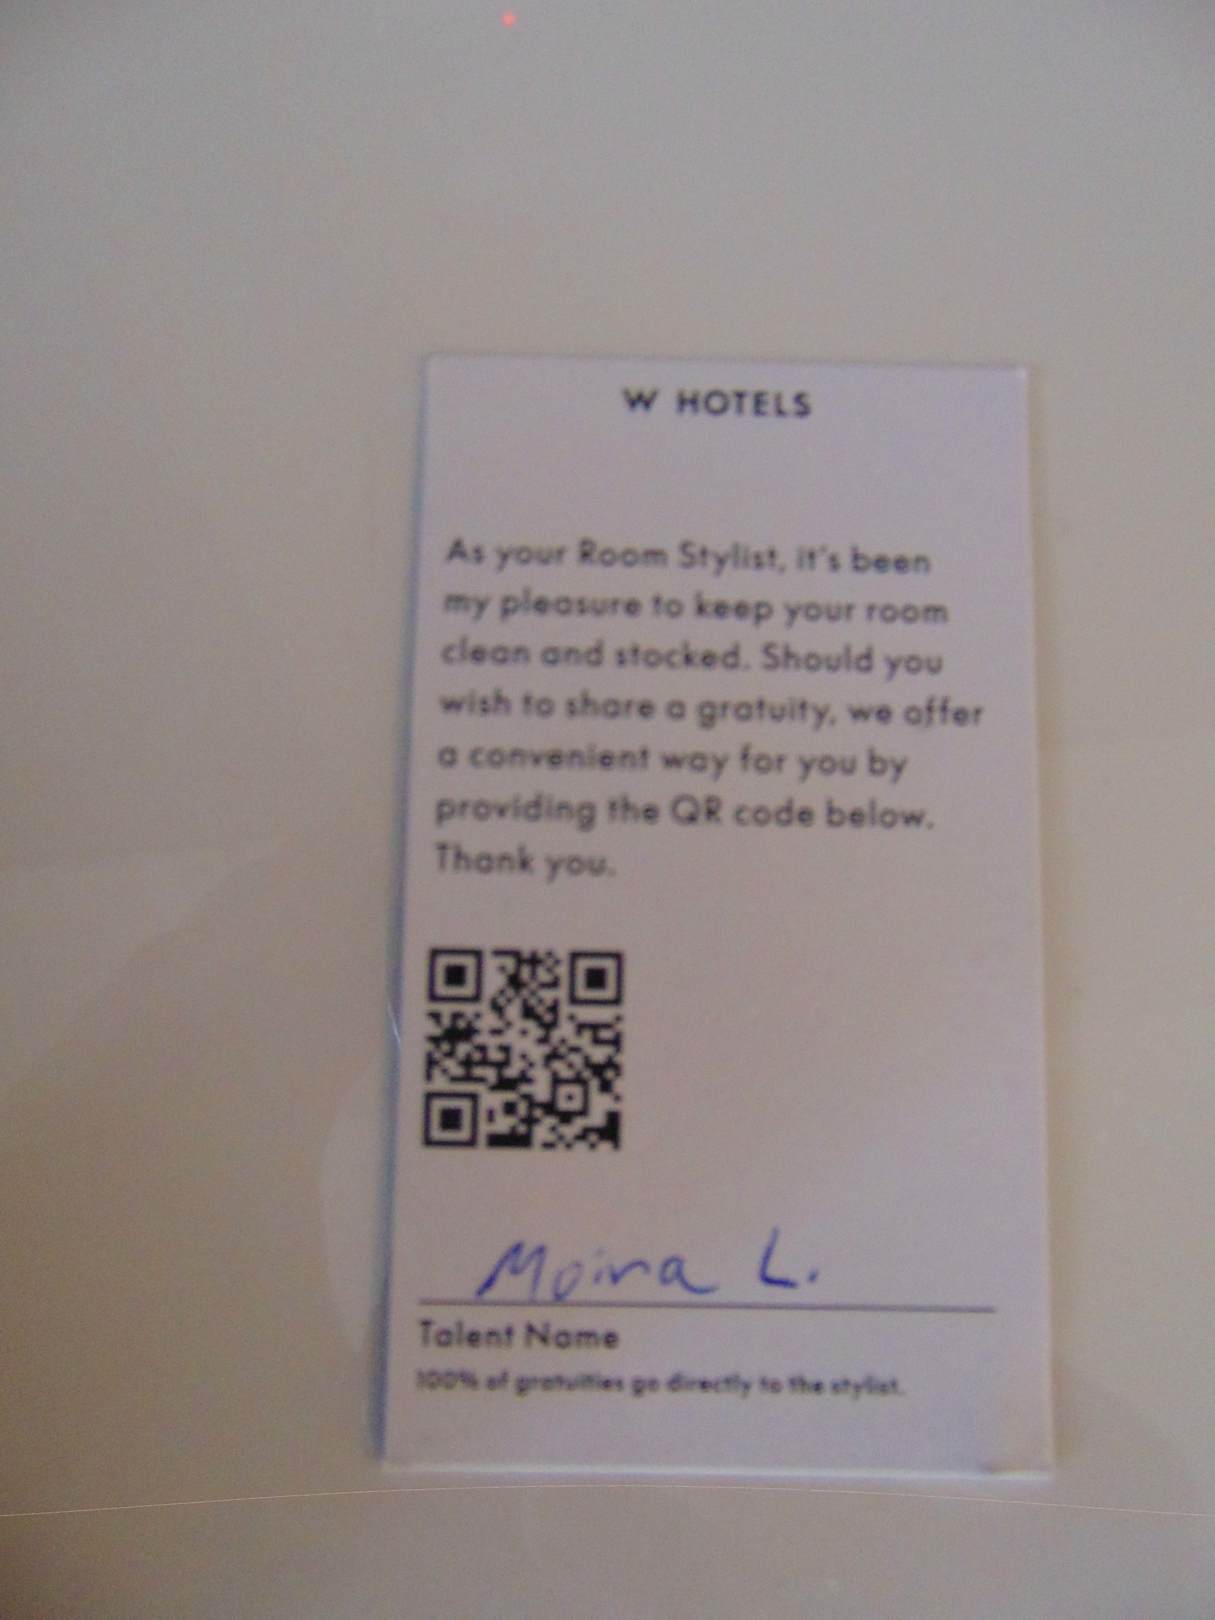 W HOTELS
As your Room Stylist, it's been
my pleasure to keep your room
clean and stocked. Should you
wish to share a gratuity, we offer
a convenient way for you by
providing the QR code below.
Thank you.
Moira L.
Talent Name
100% of gratuities go directly to the stylist.